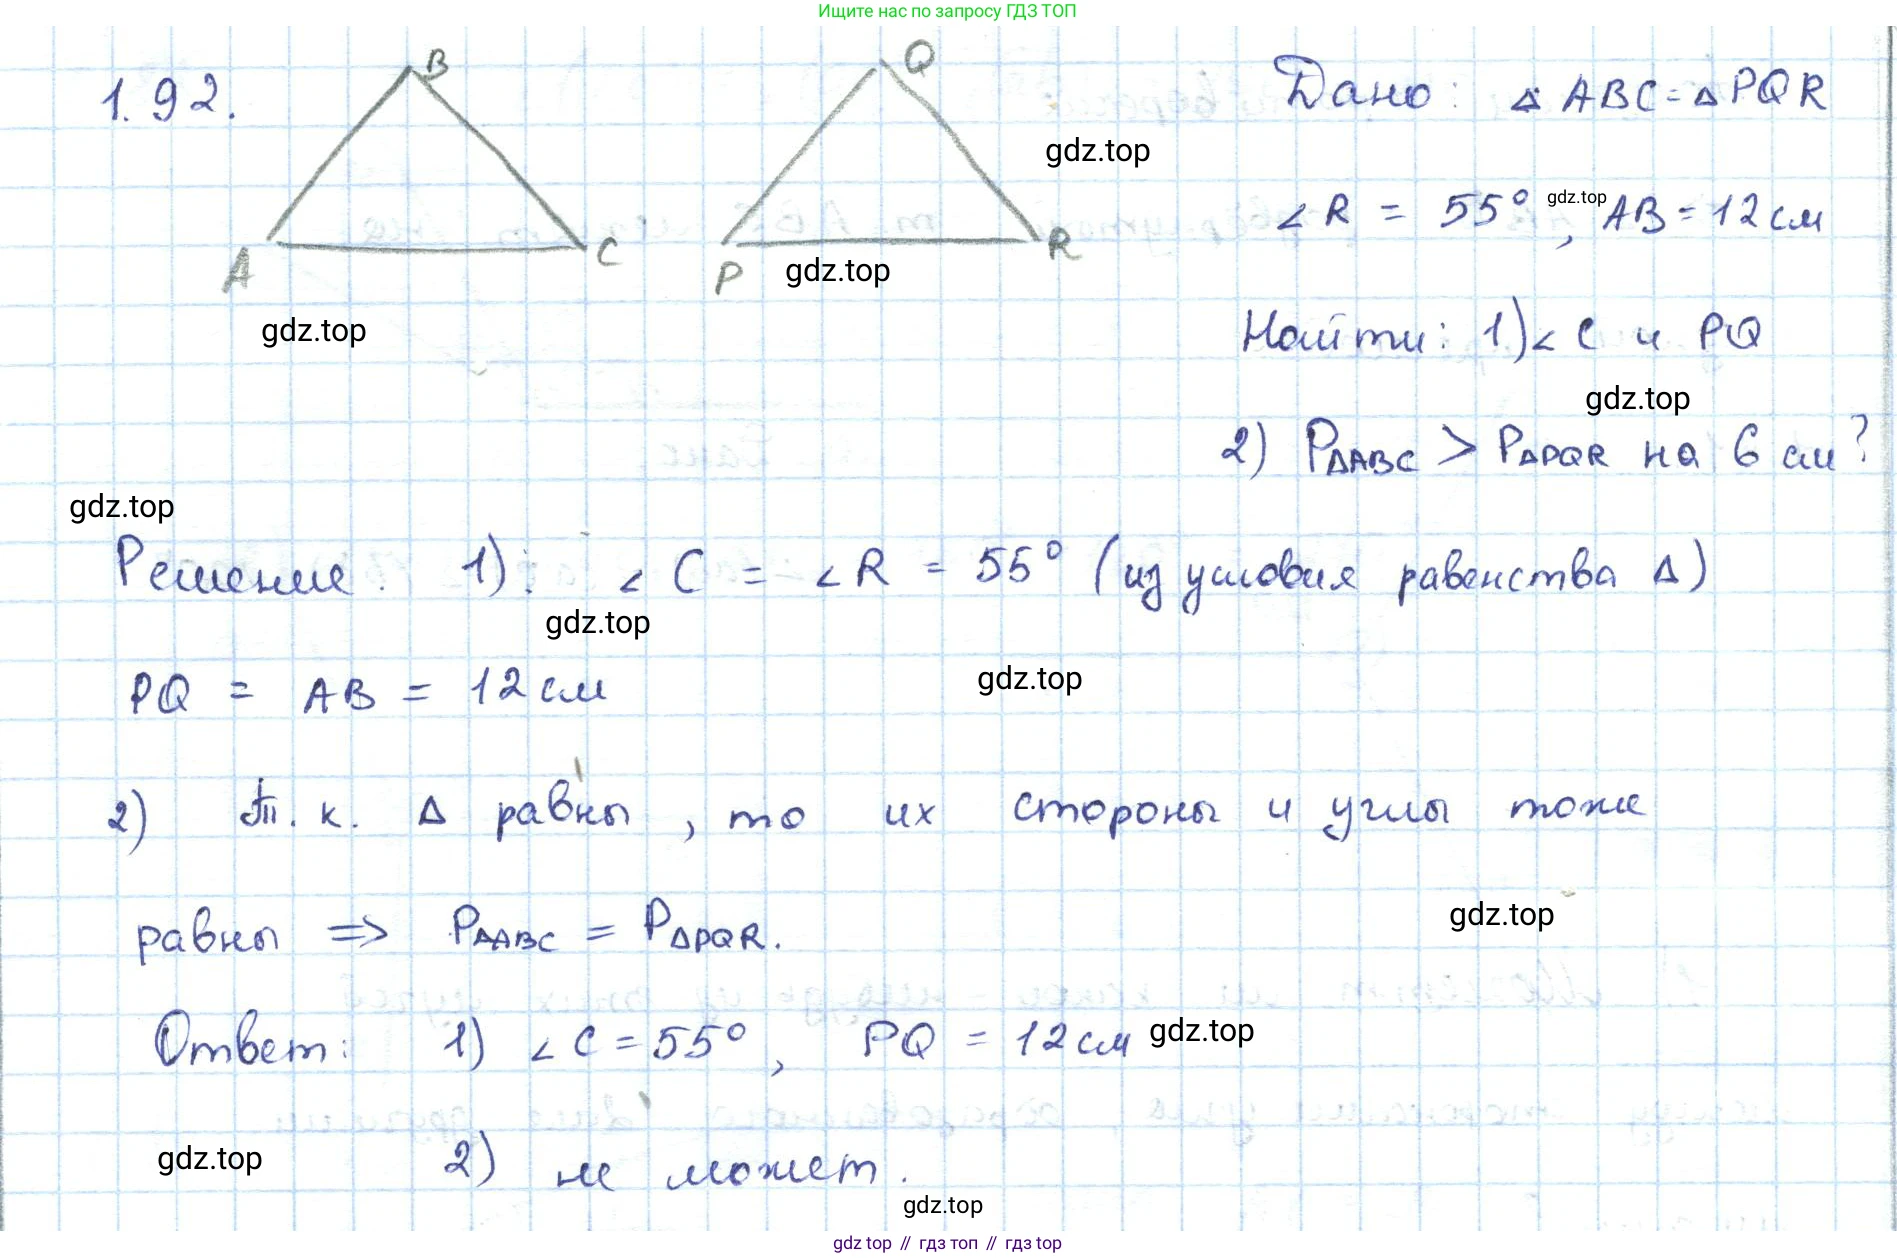 Ищите нас по запросу ГДЗ ТОП
1.92.
B
Q
Дано: △ ABC = △ PQR
gdz.top
∠R = 55°, AB = 12 см
gdz.top
A
C
P
R
gdz.top
gdz.top
Найти: 1) ∠C и PQ
gdz.top
2) P△ABC > P△PQR на 6 см?
gdz.top
Решение. 1): ∠C = ∠R = 55° (из условия равенства △)
gdz.top
gdz.top
PQ = AB = 12 см
2) Т.к. △ равны, то их стороны и углы тоже
gdz.top
равны ⇒ P△ABC = P△PQR.
Ответ: 1) ∠C = 55°, PQ = 12 см
gdz.top
gdz.top
2) не может.
gdz.top
gdz top // гдз топ // гдз top